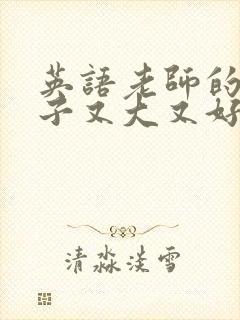 英語老師的
子又大又好
清淼淡雪